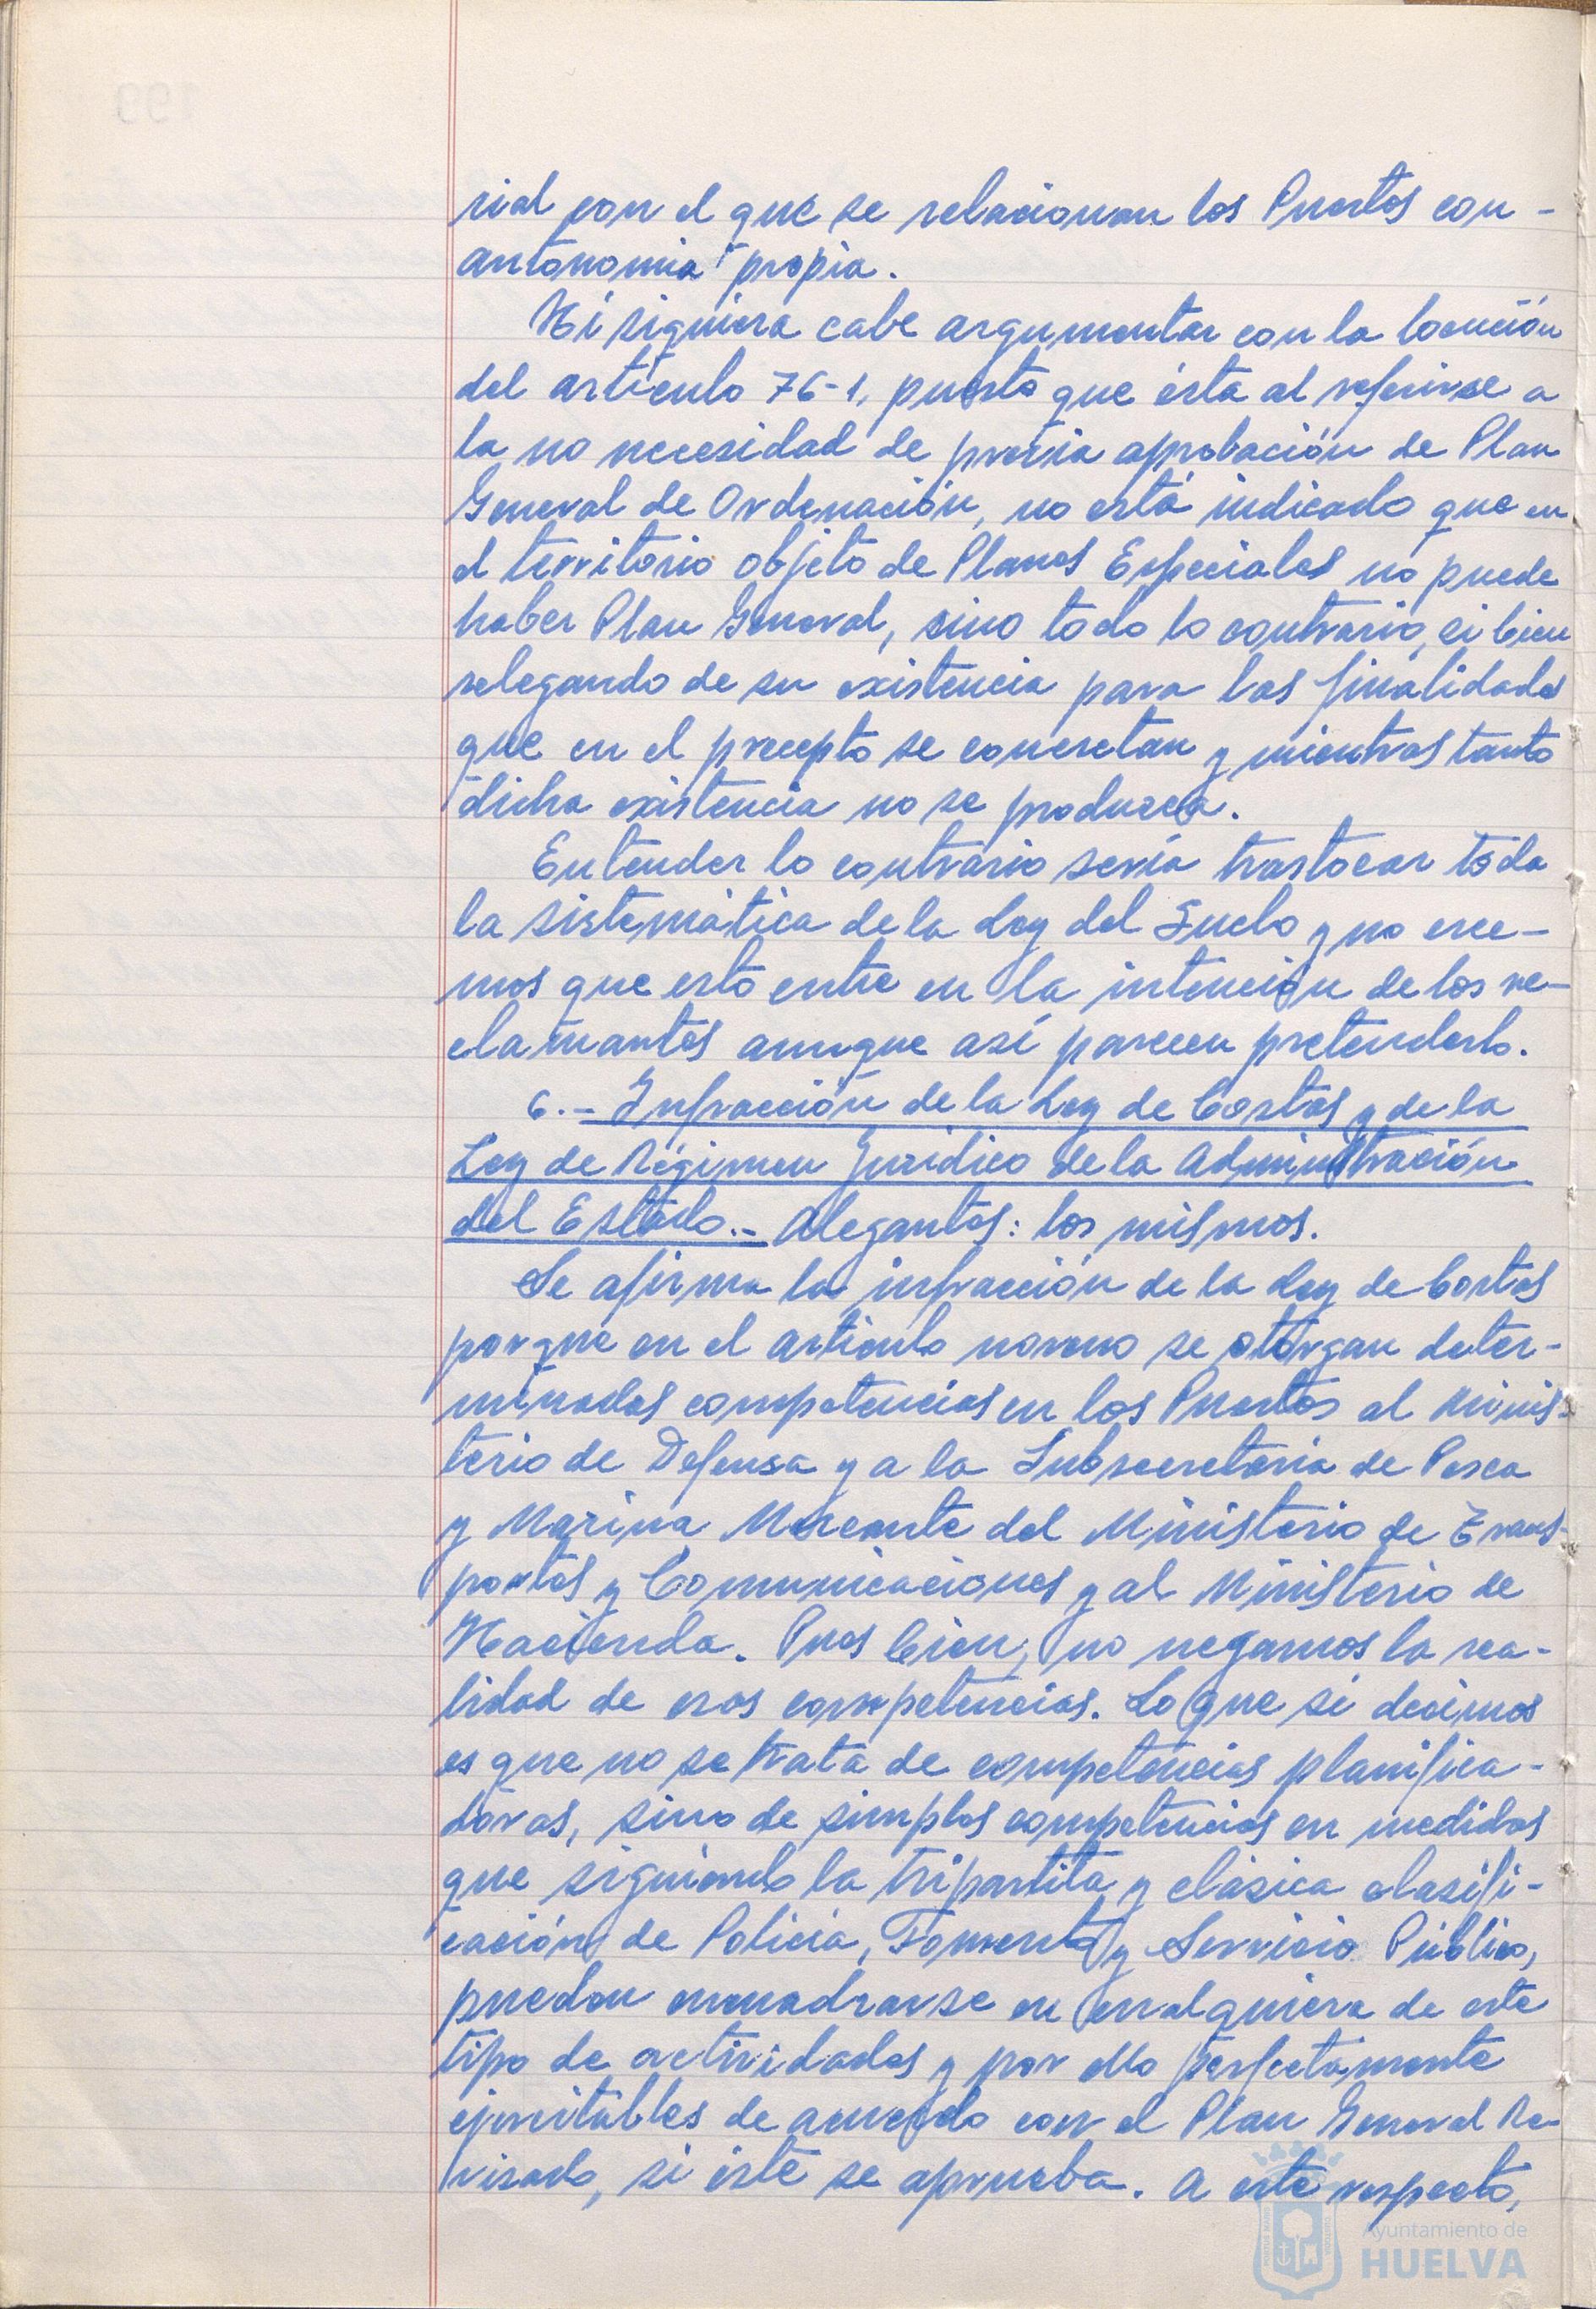 rial con el que se relacionan los Puertos con -
autonomia propia.
Ni siquiera cabe argumentar con la locución
del artículo 76-1, puesto que ésta al referirse a
la no necesidad de previa aprobación de Plan
General de Ordenación, no está indicado que en
el territorio objeto de Planes Especiales no puede
haber Plan General, sino todo lo contrario, si bien
relegando de su existencia para las finalidades
que en el precepto se concretan y mientras tanto
dicha existencia no se produzca.
Entender lo contrario sería trastocar toda
la sistemática de la Ley del Suelo y no cree-
mos que esto entre en la intención de los re-
clamantes aunque así parecen pretenderlo.
6.- Infracción de la Ley de Costas y de la
Ley de Régimen Jurídico de la Administración
del Estado.- Alegantes: los mismos.
Se afirma la infracción de la Ley de Costas
porque en el artículo noveno se otorgan deter-
minadas competencias en los Puertos al Minis-
terio de Defensa y a la Subsecretaría de Pesca
y Marina Mercante del Ministerio de Trans-
portes y Comunicaciones y al Ministerio de
Hacienda. Pues bien, no negamos la rea-
lidad de esas competencias. Lo que sí decimos
es que no se trata de competencias planifica-
doras, sino de simples competencias en medidas
que siguiendo la tripartita y clásica clasifi-
cación de Policía, Fomento y Servicio Público,
pueden encuadrarse en cualquiera de este
tipo de actividades y por ello perfectamente
ejercitables de acuerdo con el Plan General Re-
visado, si éste se aprueba. A este respecto,
Ayuntamiento de
HUELVA